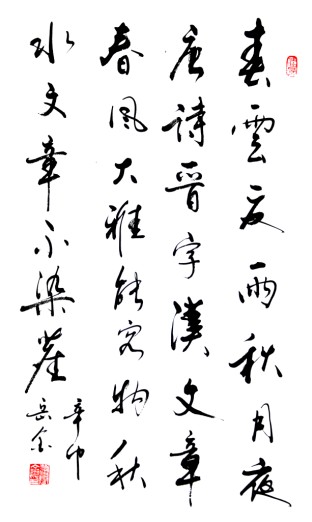 春雲夏雨秋月夜
唐詩晉字漢文章
春風大雅能容物秋
水文章不染塵
辛卯
岳金